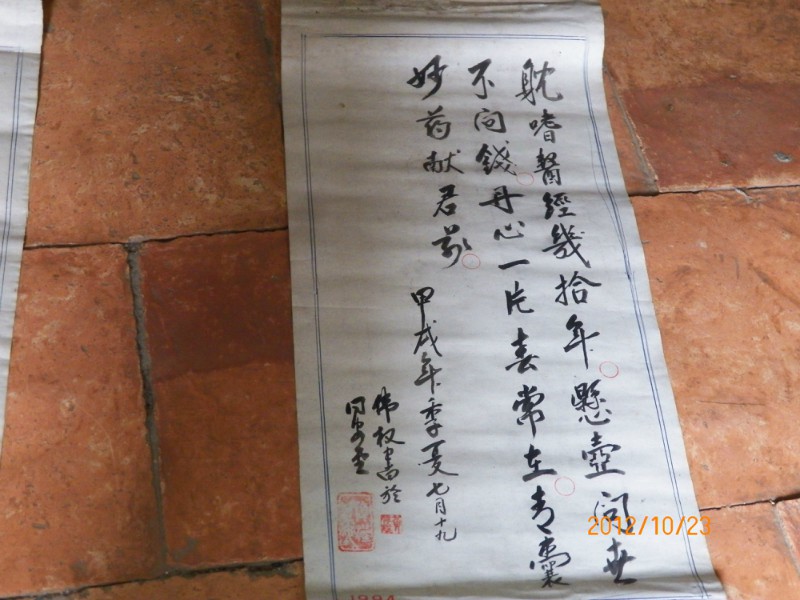 耽嗜醫經幾拾年懸壺問世
不问錢丹心一片春常在青囊
妙药献君前
甲戌年季夏七月十九
偉权書於
1994
2012/10/23